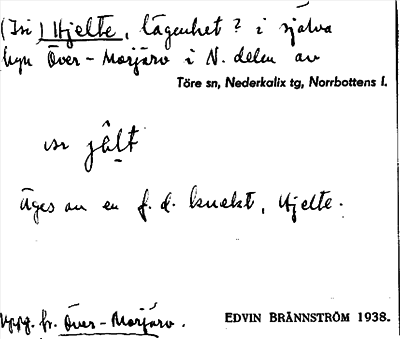 (Iri) Hjelte, lägenhet? i själva
byn Över-Morjärv i N. delen av
Töre sn, Nederkalix tg, Norrbottens l.
jält
äges av en f. d. knekt, Hjelte.
Uppg. fr. Över-Morjärv.
EDVIN BRÄNNSTRÖM 1938.